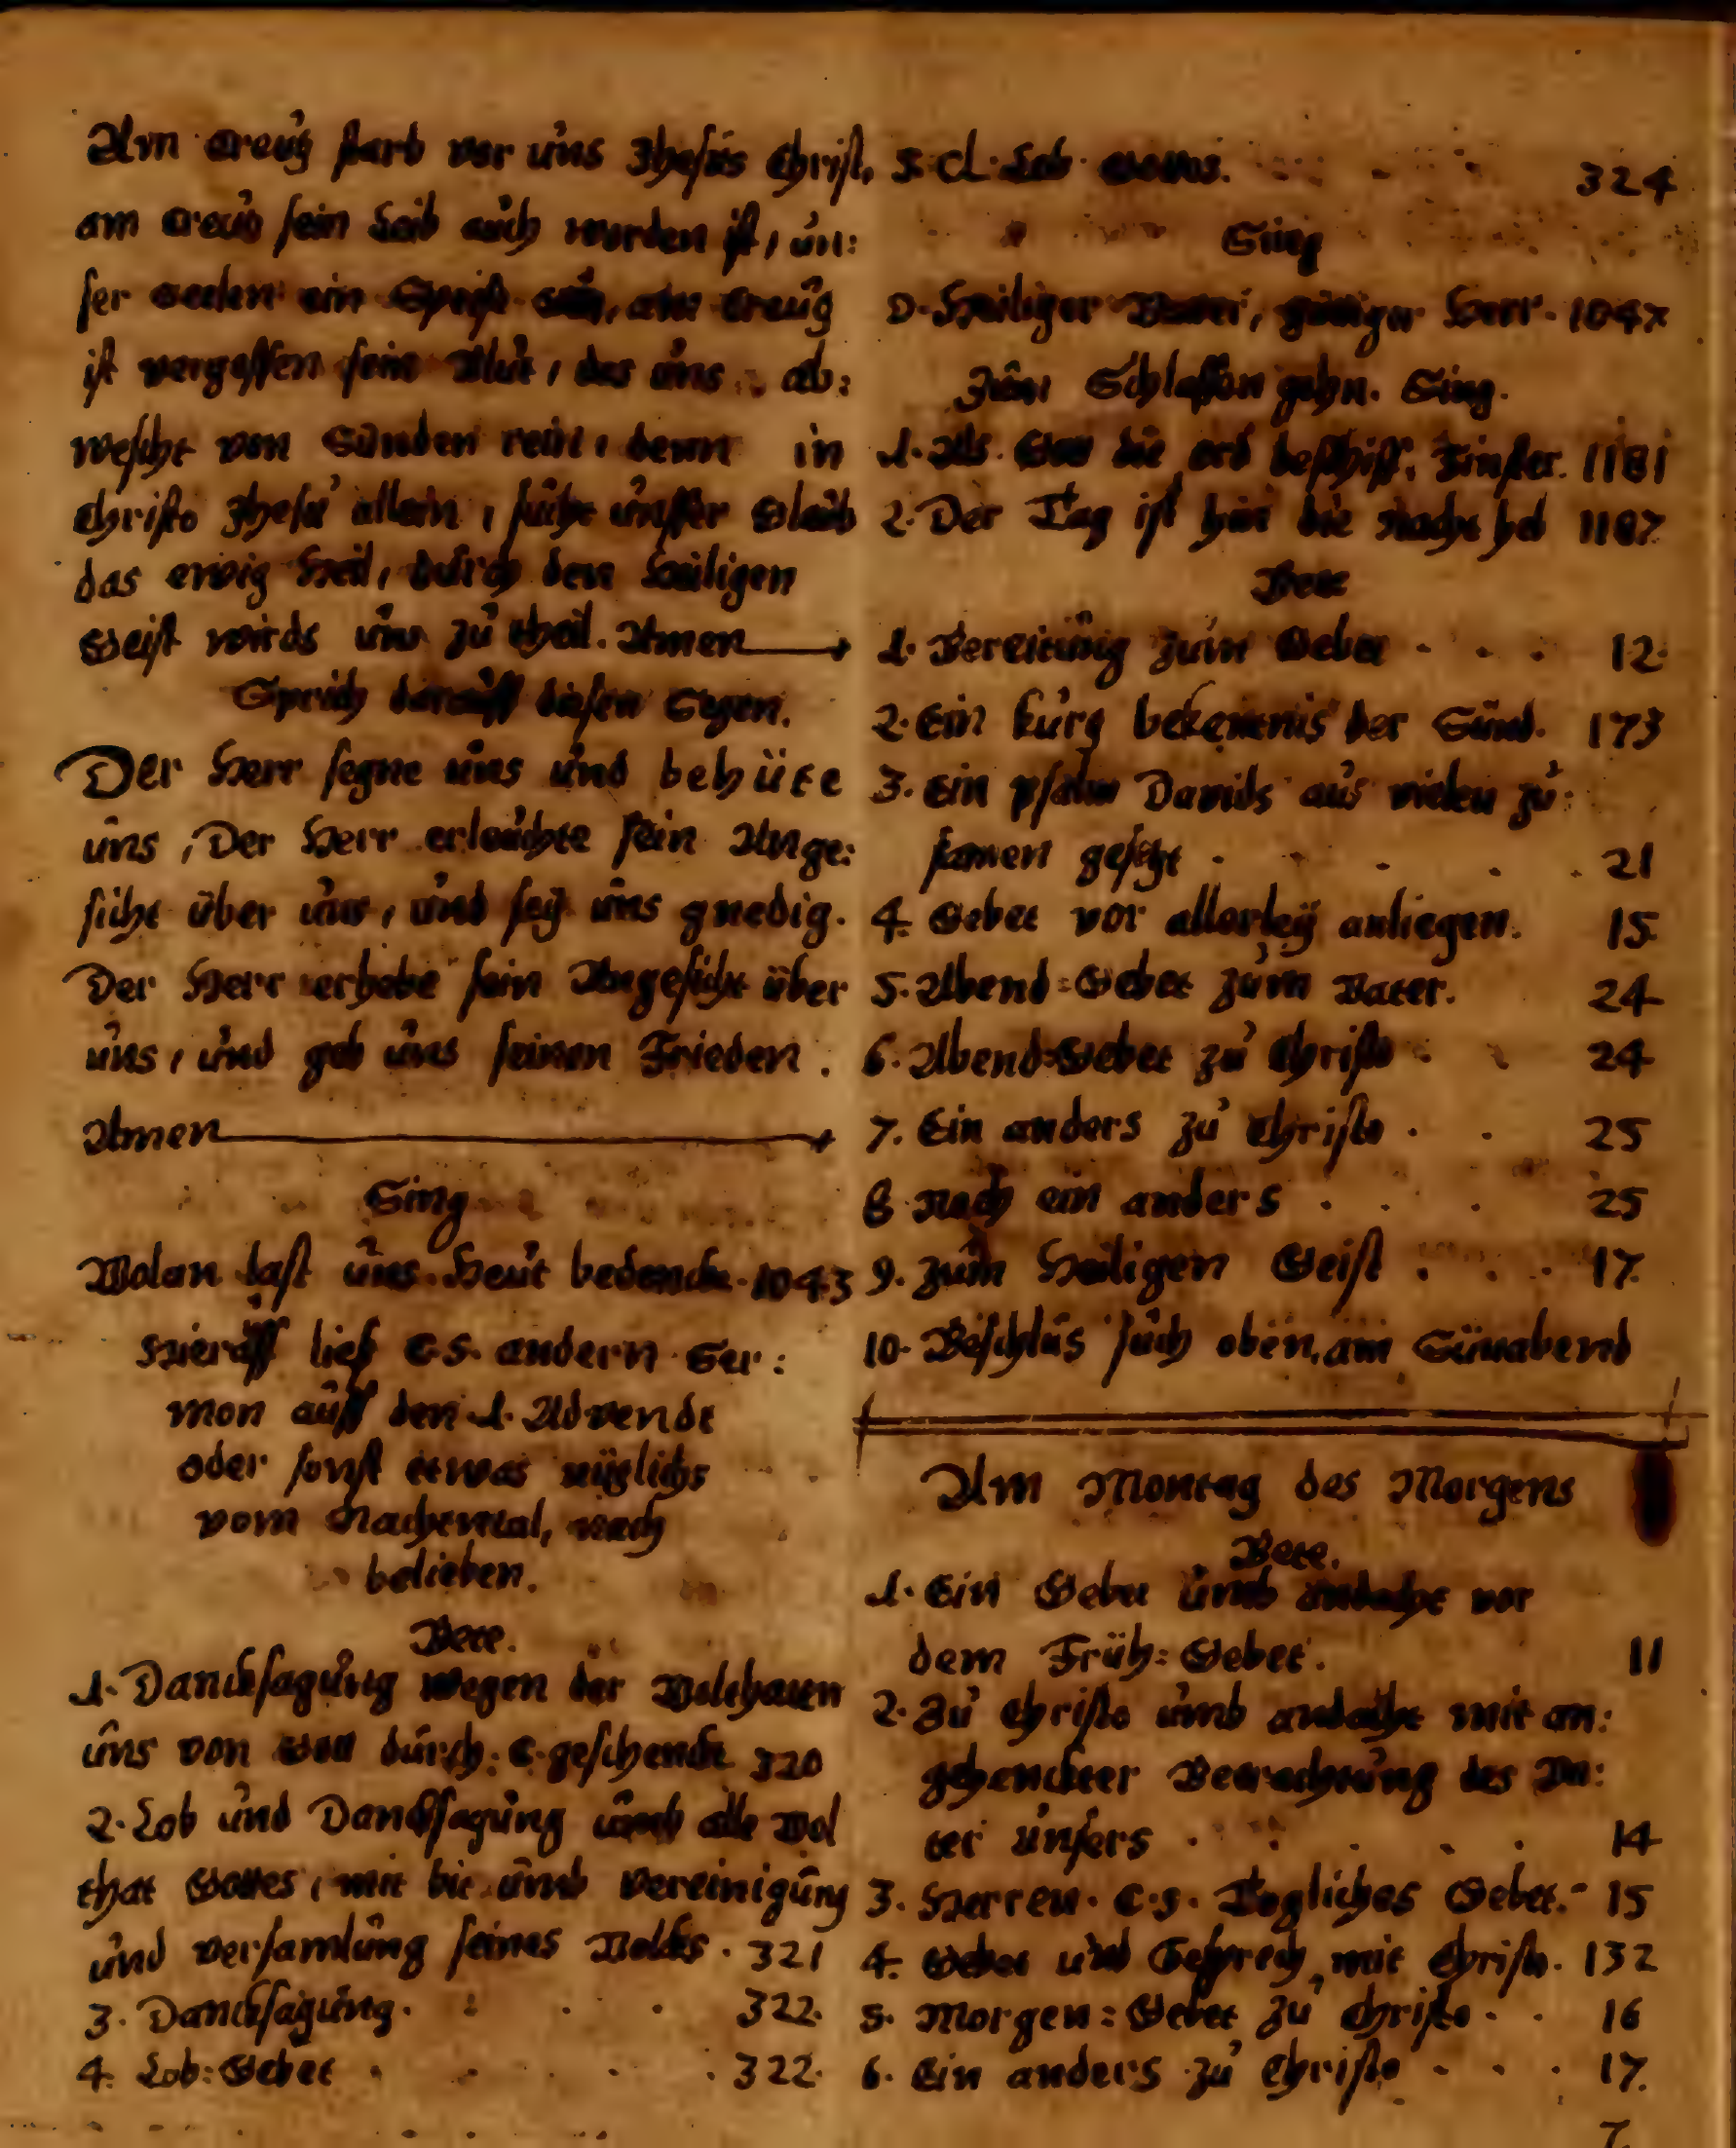 Am Creutz starb vor uns Jhesus Christ,
am Creutz sein Leib auch worden ist, un:
ser Seelen ein Speiß am Creutz
ist vergossen sein Blut, das uns ab:
wescht von Sünden rein, denn in
Christo Jhesu allein, sucht unsser Glaub
das ewig Heil, durch den Heiligen
Geist wirds uns zu theil. Amen
Sprich darauff diesen Segen.
Der Herr segne uns und behüte
uns, Der Herr erleuchte sein Ange:
sicht über uns, und sey uns gnedig.
Der Herr erhebe sein Angesicht über
uns, und geb uns seinen Frieden.
Amen
Sing
Wolan last uns Heut bedenck. 1043
Hierauff lies C. S. andern Ser:
mon auff den 1. Advendt
oder sonst etwas nützlichs
vom Nachtmal, nach
belieben.
Bete.
1. Dancksagung wegen der Wolthaten
uns von Gott durch. C. geschenckt 320
2. Lob und Dancksagung umb alle Wol
that Gottes, mit bit umb Vereinigung
und versamlung seines Volcks. 321
3. Dancksagung. 322.
4. Lob: Gebet 322.
5. Lob 324
Sing
O Heiliger Vater, gütiger Herr. 1047
Zum Schlaffen gehn. Sing.
1. Als Gott die erd beschist, Finster. 1181
2. Der Tag ist hin die Nacht 1187
Bete
1. Bereitung zum Gebet 12.
2. Ein kurtz bekentnis der Sünd. 173
3. Ein psalm Davids aus vielen zu:
samen gesetzt 21
4. Gebet vor allerley anliegen. 15
5. Abend: Gebet zum Vater. 24
6. Abend: Gebet zu Christo 24
7. Ein anders zu Christo 25
8. Noch ein anders 25
9. zum Heiligen Geist 17.
10. Beschlus such oben, am Sünabend
Am Montag des Morgens
Bete.
1. Ein Gebet umb andacht vor
dem Früh: Gebet. 11
2. Zu Christo umb andacht mit an:
gehenckter Betrachtung des Va:
ter unsers 14
3. Herren. C. S. Tegliches Gebet. 15
4. Gebet und Gesprech, mit Christo. 132
5. Morgen: Gebet zu Christo 16
6. Ein anders zu Christo 17.
7.